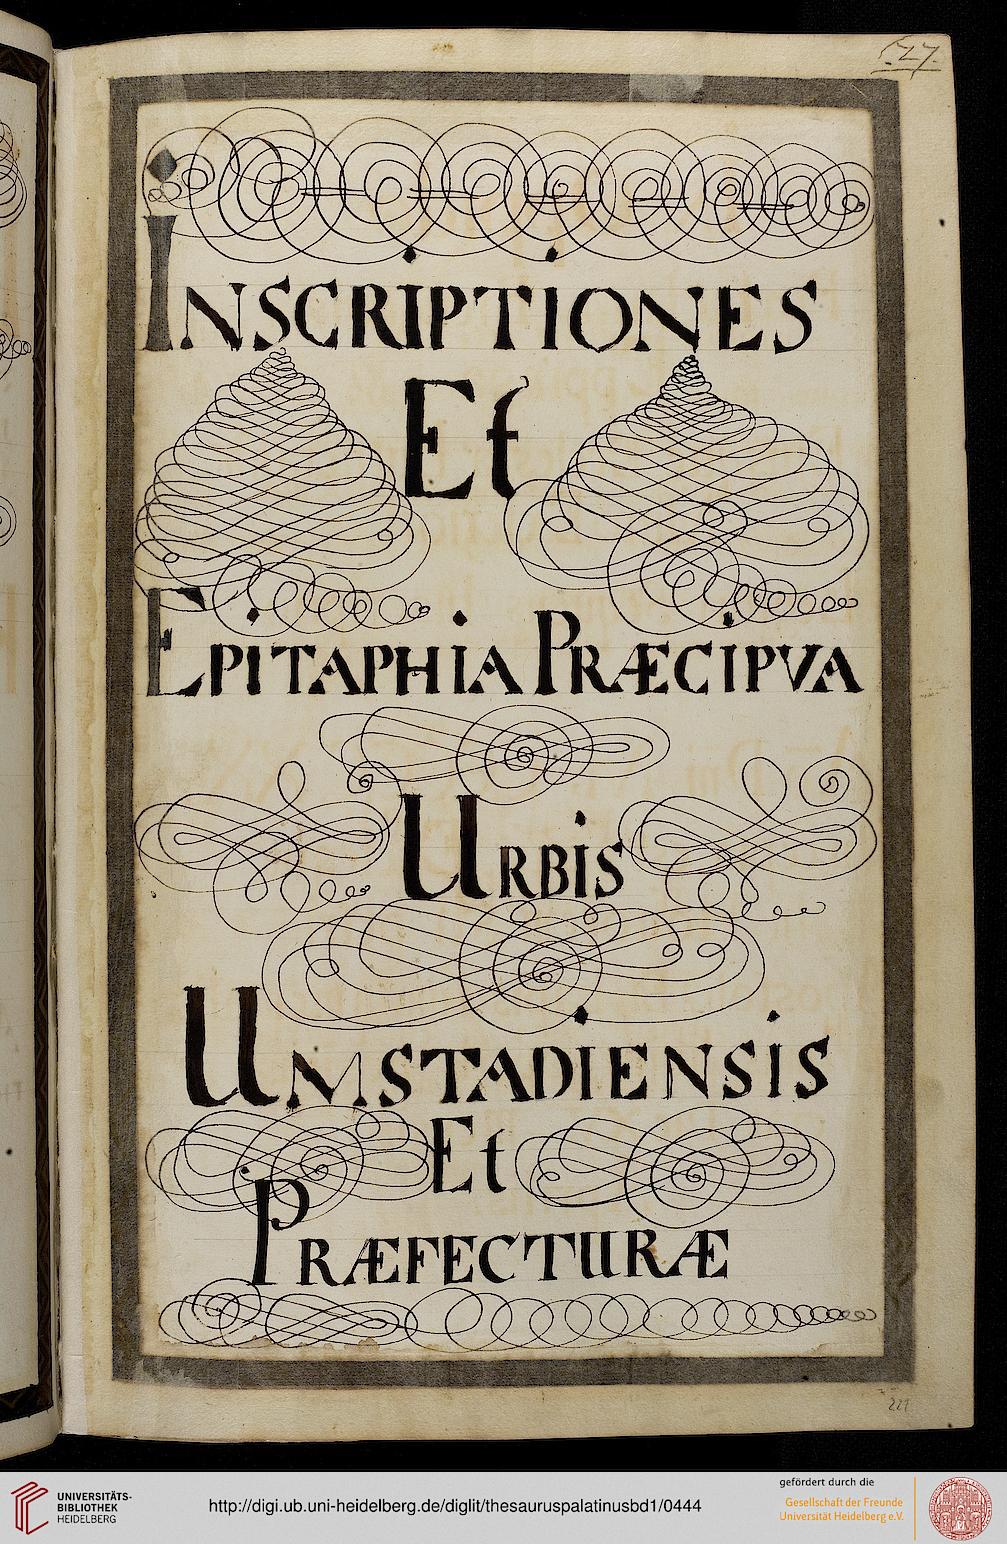 527.
INSCRIPTIONES
Et
EPITAPHIA PRÆCIPVA
URBIS
UMSTADIENSIS
Et
PRÆFECTURÆ
221
UNIVERSITÄTS-
BIBLIOTHEK
HEIDELBERG
http://digi.ub.uni-heidelberg.de/diglit/thesauruspalatinusbd1/0444
gefördert durch die
Gesellschaft der Freunde
Universität Heidelberg e.V.